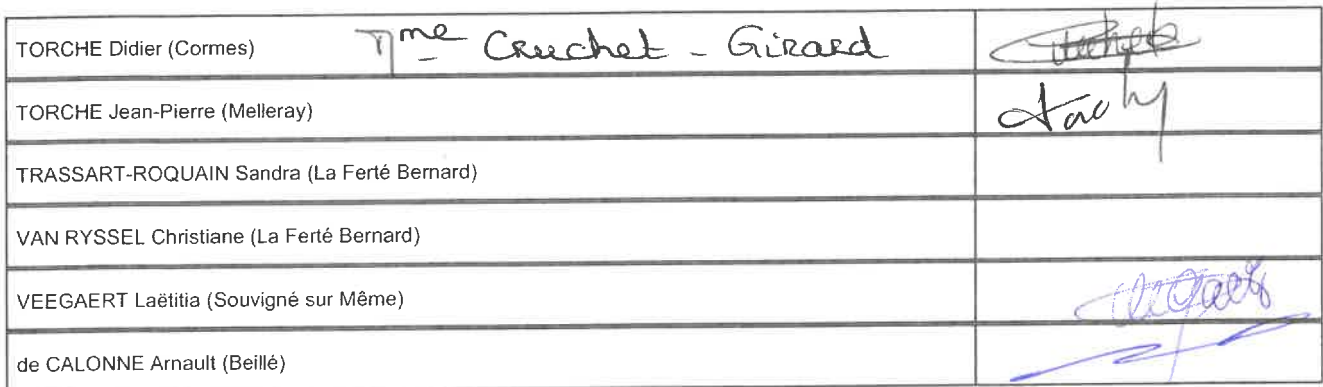 TORCHE Didier (Cormes) Mme Cruchet - Girard
TORCHE Jean-Pierre (Melleray)
TRASSART-ROQUAIN Sandra (La Ferté Bernard)
VAN RYSSEL Christiane (La Ferté Bernard)
VEEGAERT Laëtitia (Souvigné sur Même)
de CALONNE Arnault (Beillé)